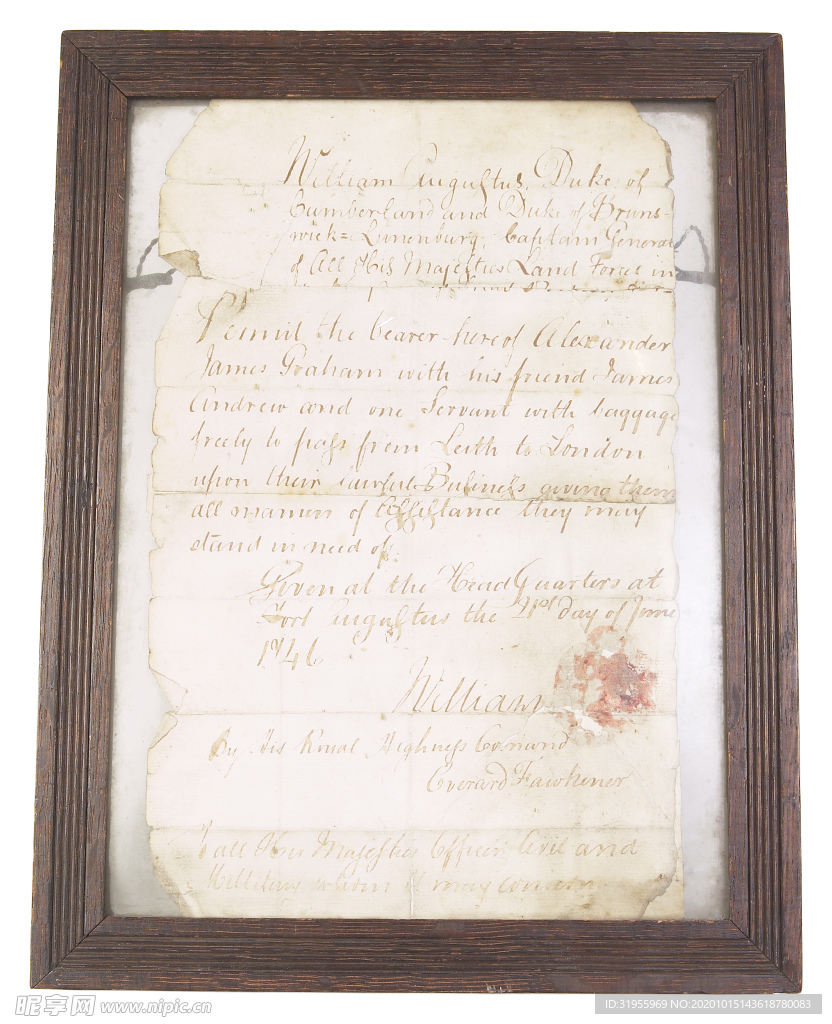 William Augustus, Duke of
Cumberland and Duke of Bruns-
wick=Lunenburg, Captain General
of All His Majesties Land Forces in
Permit the bearer hereof Alexander
James Graham with his friend James
Andrew and one Servant with baggage
freely to pass from Leith to London
upon their lawfull Business giving them
all manner of Assistance they may
stand in need of.
Given at the Head Quarters at
Fort Augustus the 21st day of June
1746
William
By His Royal Highness Comand
Everard Fawkener
To all His Majesties Officers Civil and
Millitary whom it may concern
昵享网 www.nipic.cn
ID:31955969 NO:20201015143618780083